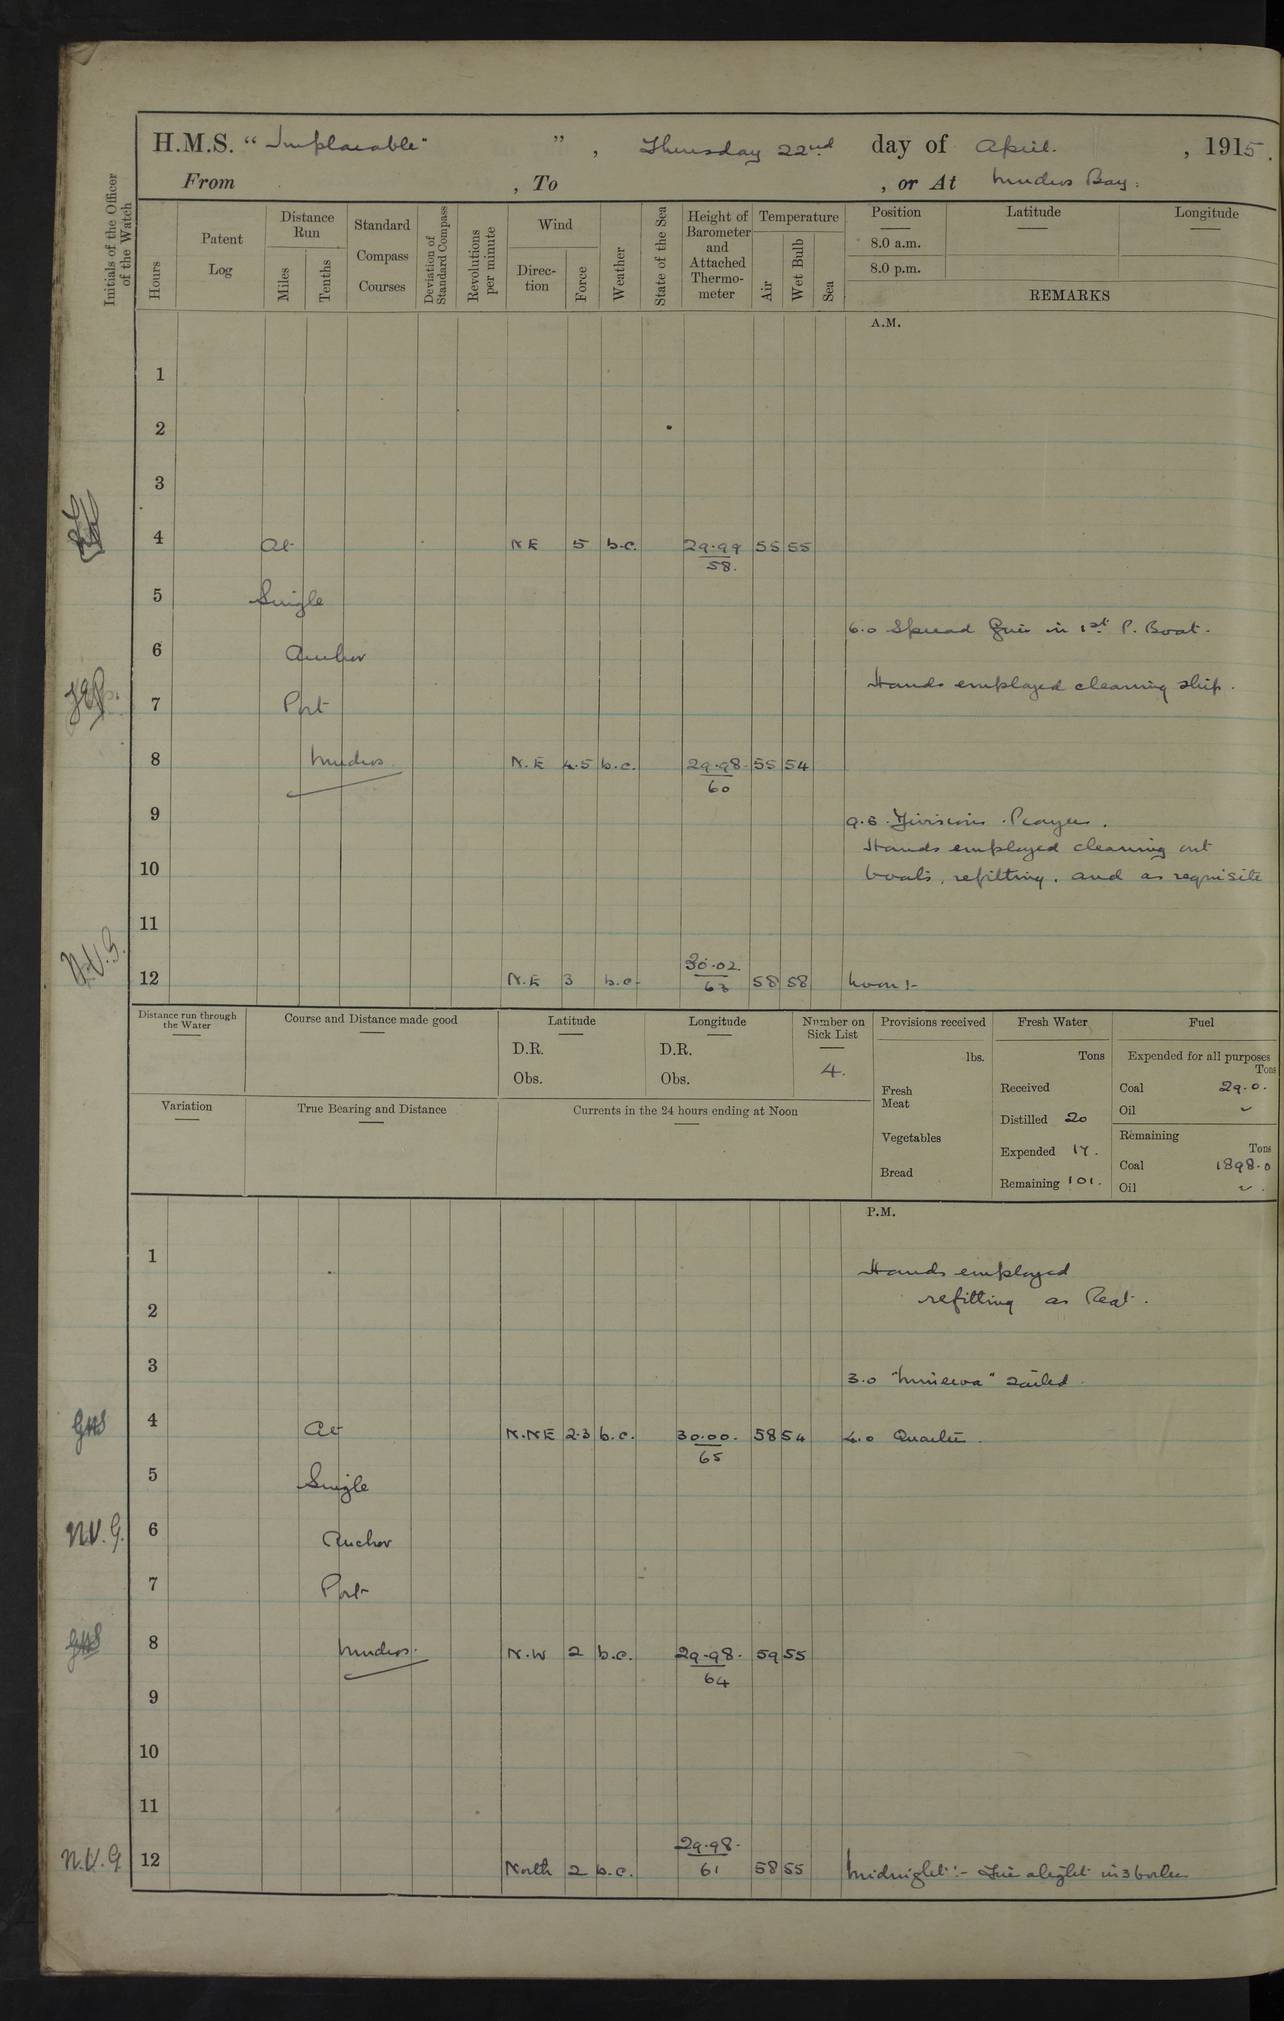 H.M.S. "Implacable" ", Thursday 22nd day of April. , 1915.
From , To , or At Mudros Bay.
Initials of the Officer of the Watch
Hours
Patent Log
Distance Run
Miles
Tenths
Standard Compass Courses
Deviation of Standard Compass
Revolutions per minute
Wind
Direction
Force
Weather
State of the Sea
Height of Barometer and Attached Thermometer
Temperature
Air
Wet Bulb
Sea
Position Latitude Longitude
8.0 a.m.
8.0 p.m.
REMARKS
A.M.
1
2
3
4 At N E 5 b.c. 29.99 55 55
58.
5 Single
6.0 Spread Fires in 1st P. Boat.
6 Anchor
Hands employed cleaning ship.
7 Port
8 Mudros. N.E 4.5 b.c. 29.98. 55 54
60
9 9.0. Divisions. Prayers.
Hands employed cleaning out
10 boats, refitting. and as requisite
11
30.02.
12 N.E 3 b.c. 63 58 58 Noon :-
N.V.G.
Distance run through the Water
Course and Distance made good
Latitude
D.R.
Obs.
Longitude
D.R.
Obs.
Number on Sick List
4.
Provisions received
lbs.
Fresh Meat
Vegetables
Bread
Fresh Water
Tons
Received
Distilled 20
Expended 17.
Remaining 101.
Fuel
Expended for all purposes
Tons
Coal 29.0.
Oil
Remaining
Tons
Coal 1898.0
Oil
Variation
True Bearing and Distance
Currents in the 24 hours ending at Noon
P.M.
1 Hands employed
2 refitting as Reqt.
3 3.0 "Minerva" sailed.
GHS 4 At N.NE 2.3 b.c. 30.00. 58 54 4.0 Quarters.
65
5 Single
N.V.G. 6 Anchor
7 Port
GHS 8 Mudros. N.W 2 b.c. 29.98. 59 55
64
9
10
11
29.98.
N.V.G 12 North 2 b.c. 61 58 55 Midnight :- Fires alight in 3 boilers